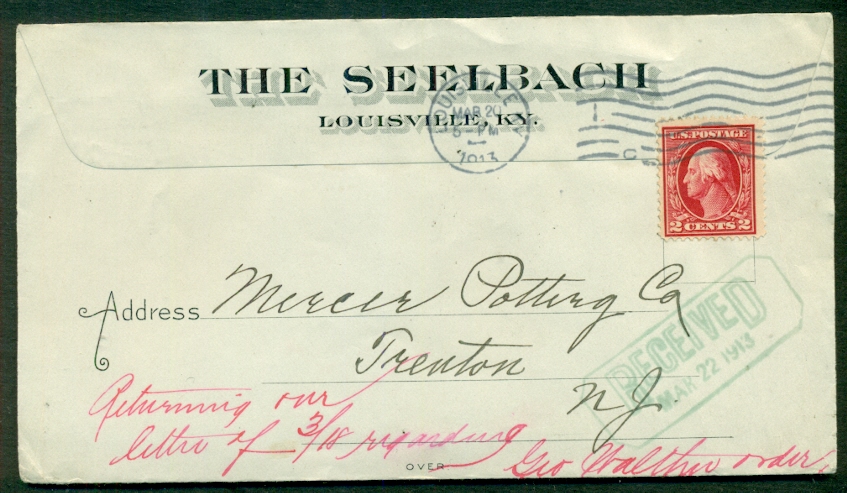 THE SEELBACH
LOUISVILLE, KY.
LOUISVILLE KY
MAR 20
5-PM
1913
C
U.S. POSTAGE
2 CENTS 2
Address Mercer Pottery Co
Trenton
NJ
RECEIVED
MAR 22 1913
Returning our
letter of 3/18 regarding Geo Walther order
OVER